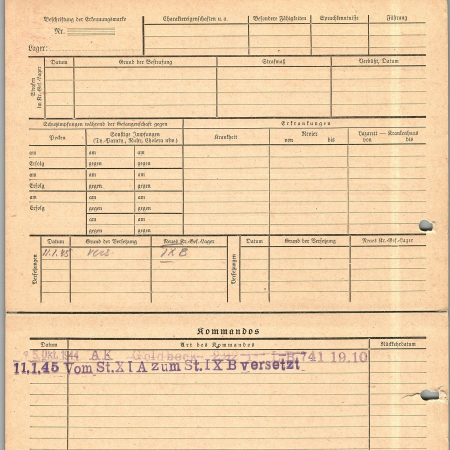 Beschriftung der Erkennungsmarke
Charaktereigenschaften u. o.
Besondere Fähigkeiten
Sprachkenntnisse
Führung
Nr.
Lager:
Strafen im Kr.-Gef.-Lager
Datum
Grund der Bestrafung
Strafmaß
Verbüßt, Datum
Schutzimpfungen während der Gefangenschaft gegen
Erkrankungen
Pocken
Sonstige Impfungen
(Ty.-Paraty., Ruhr, Cholera usw.)
Krankheit
Revier
von bis
Lazarett — Krankenhaus
von bis
am am am
Erfolg gegen gegen
am am am
Erfolg gegen gegen
am am am
Erfolg gegen gegen
am am
gegen gegen
Versetzungen
Datum
Grund der Versetzung
Neues Kr.-Gef.-Lager
Versetzungen
Datum
Grund der Versetzung
Neues Kr.-Gef.-Lager
11.1.45 IX B
Kommandos
Datum
Art des Kommandos
Rückkehrdatum
Okt. 1944 AK 741 19.10
11.1.45 Vom St. XI A zum St. IX B versetzt